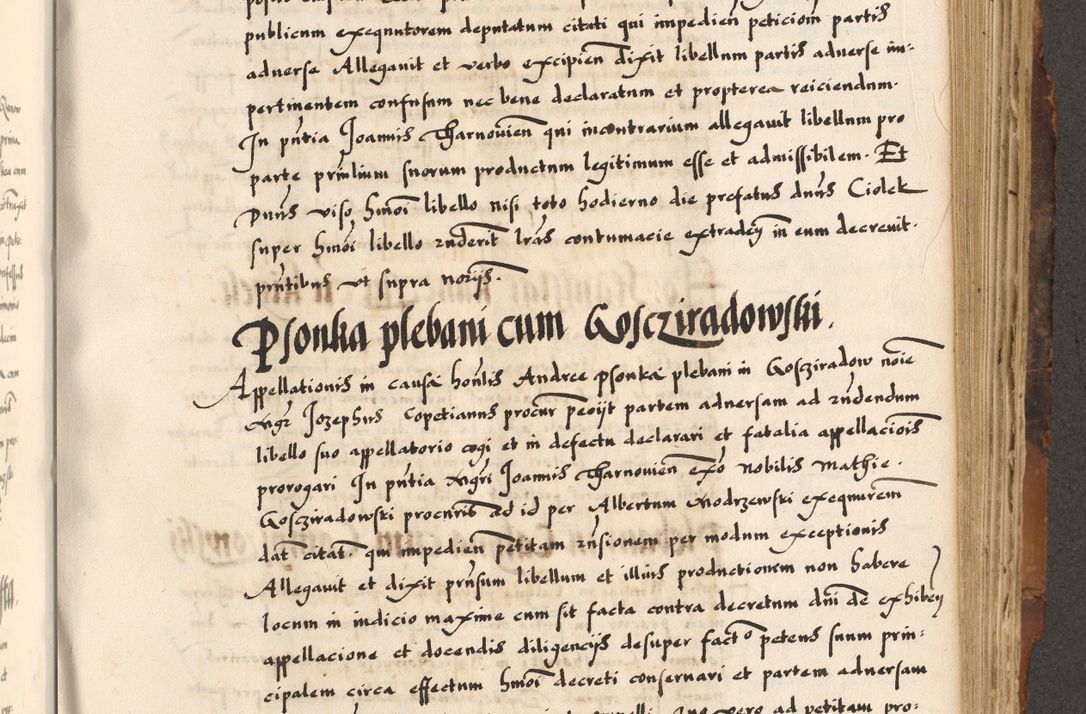 publicum exequutorem deputatum citati qui impedien peticiom partis
aduerse Allegauit et verbo excipien dixit libellum partis aduerse im-
pertinentem confusum nec bene declaratum et propterea reiciendum.
In pntia Joannis Tharnouien qui incontrarium allegauit libellum pro
parte prinlium suorum productum legitimum esse et admissibilem. Et
Duns viso hmoi libello nisi toto hodierno die prefatus duns Ciolek
super hmoi libello rnderit lras contumacie extradey in eum decreuit.
pntibus vt supra norijs.
Psonka plebani cum Goscziradowski.
Appellationis in causa honlis Andree psonka plebani in Gosziradow noie
mgr Jozephus Copctianus procur peoijt partem aduersam ad rndendum
libello suo appellatorio cogi et in defectu declarari et fatalia appellaciois
prorogari In pntia mgri Joannis Tharnouien exo nobilis Mathie.
Gosziradowski procuris ad id per Albertum modrzewski exequurem
dat citat. qui impedien petitam rnsionem per modum exceptionis
Allegauit et dixit prnsum libellum et illius productionem non habere
locum in iudicio maxime cum sit facta contra decretum dni de exhibey
appellacione et docendis diligencijs desuper facto petens suum prin-
cipalem circa effectum hmoi decreti conseruari et partem aduersam